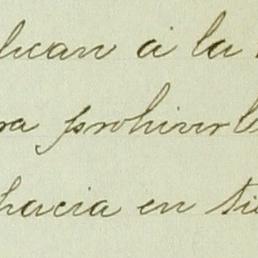 lican a la
ra prohivirle
hacia en tie